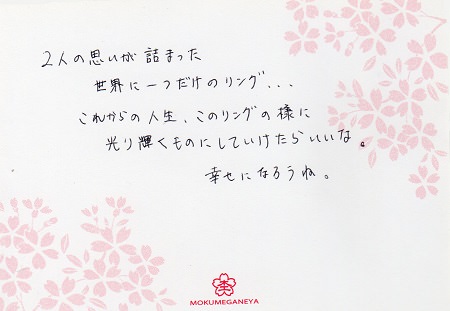 2人の思いが詰まった
世界に一つだけのリング...
これからの人生、このリングの様に
光り輝くものにしていけたらいいな。
幸せになろうね。
MOKUMEGANEYA